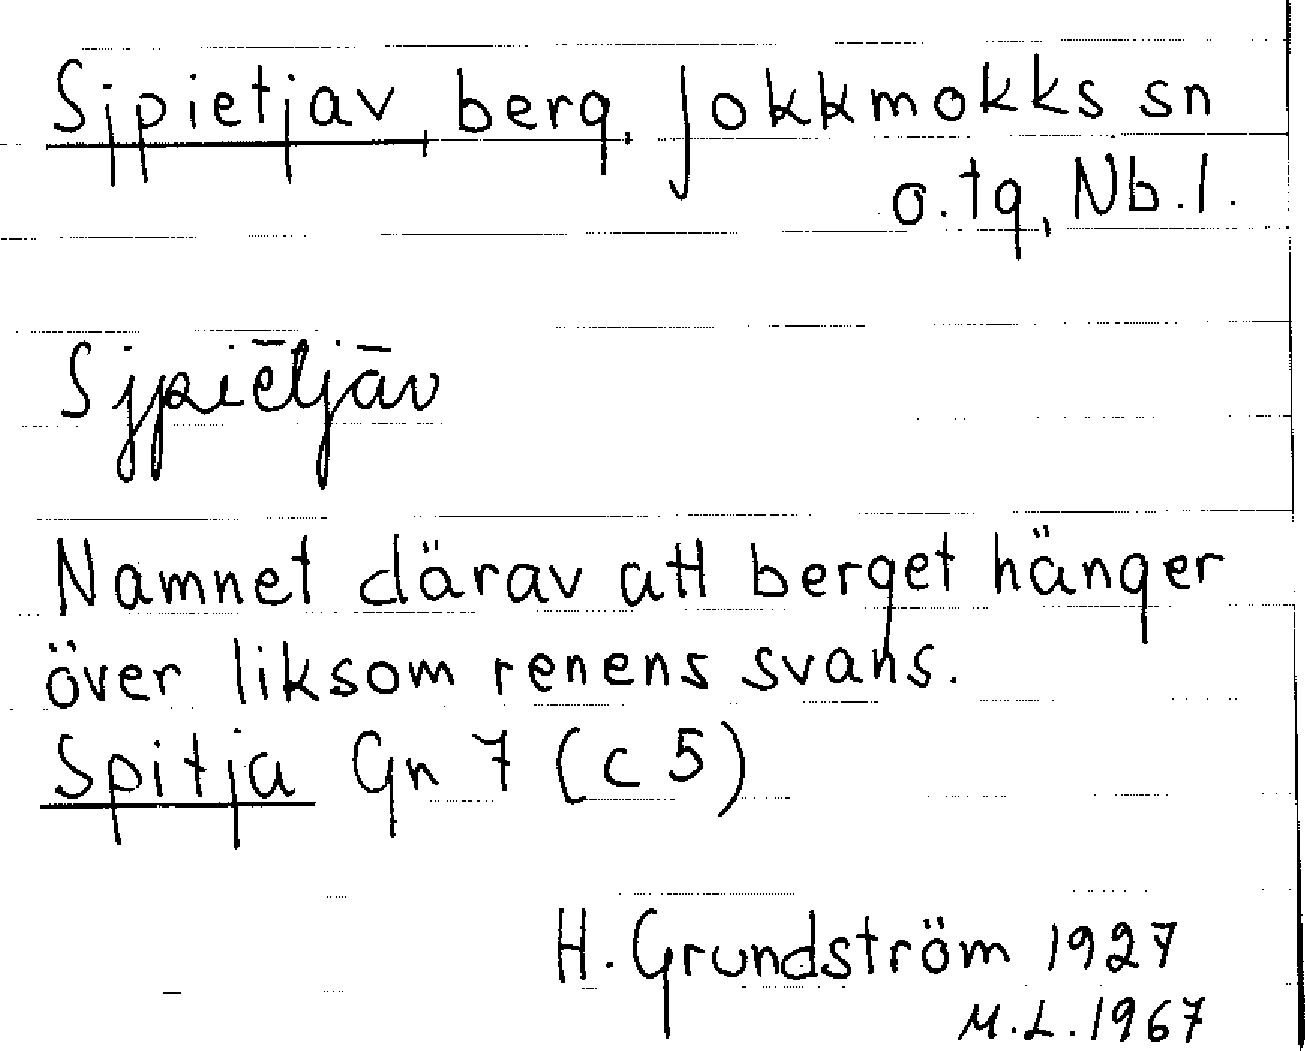 Sjpietjav, berg, Jokkmokks sn
o. tg, Nb. l.
Sjpiētjāv
Namnet därav att berget hänger
över liksom renens svans.
Spitja Gn 7 (c 5)
H. Grundström 1927
M.L. 1967